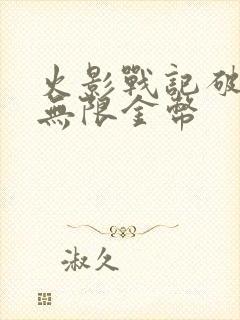 火影戰記破
無限金幣
淑久